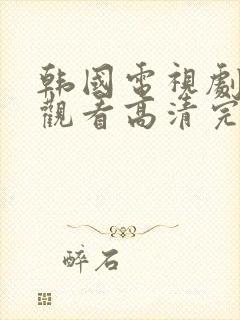 韩國電視劇
觀看高清完
醉石